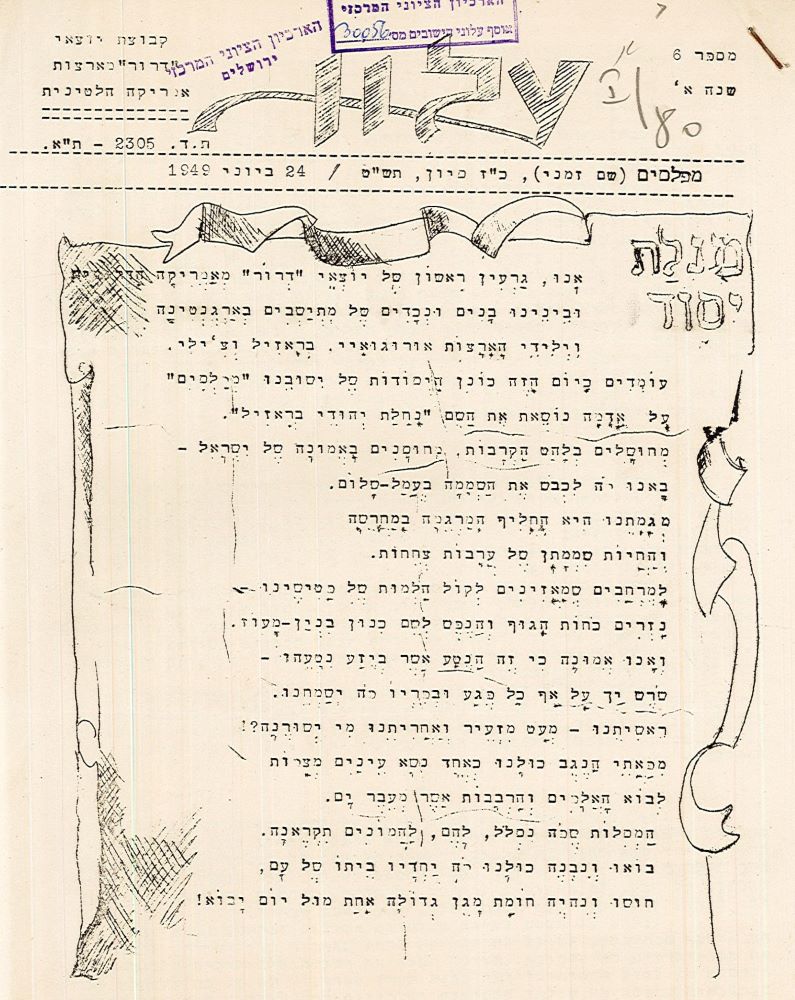 הארכיון הציוני המרכזי
אוסף עלוני הישובים מס'
הארכיון הציוני המרכזי
ירושלים
קבוצת יוצאי
"דרור" מארצות
אמריקה הלטינית
ת.ד. 2305 – ת"א.
עלון
מספר 6
שנה א'
80/I
מפלסים (שם זמני), כ"ז סיון, תש"ט / 24 ביוני 1949
מגלת
יסוד
אָנוּ, גַרְעִין רִאשוֹן שֶל יוֹצְאֵי "דְרוֹר" מֵאַמֶרִיקָה הַלטינית
וּבֵינֵינוּ בָנִים וּנְכָדִים שֶל מִתְיַשְבִים בְאַרְגֶנְטִינָה
וִילִידֵי הָאֲרָצוֹת אורוגוּאַיי, בְרָאזִיל וְצ'ילי.
עוֹמְדִים כַיוֹם הַזֶה כוֹנֵן הַיסוֹדוֹת שֶל יִשוּבֵנוּ "מפלסים"
עַל אֲדָמָה נוֹשֵאת אֶת הַשֵם "נַחֲלַת יְהוּדֵי בְרָאזִיל".
מְחוּשָלִים בְלַהַט הַקְרָבוֹת, מחוּסָנִים בָאֱמוּנָה שֶל יִשְרָאֵל –
בָאנוּ פה לִכְבֹש אֶת הַשְמָמָה בַעֲמַל-שָלוֹם.
מְגַמָתֵנוּ הִיא הַחֲלִיף המרגמה בַמַחֲרֵשָה
וְהַחֲיוֹת שִמְמָתָן שֶל עֲרָבוֹת צְחִחוֹת.
לַמֶרְחָבִים שֶמַאֲזִינִים לְקוֹל הַלְמוּת שֶל פַטִישֵינוּ –
נָזְרִים כֹחוֹת הַגוּף וְהַנֶפֶש לְשֵם כִנוּן בִנְיַן-מָעוֹז.
וְאָנוּ אֱמוּנָה כִי זֶה הַנֶטַע אֲשֶר בְיֶזַע נִטָעֵהוּ –
שֹרֶש יַךְ עַל אַף כָל פֶגַע וּבְפִרְיוֹ פה יְשַמְחֵנוּ.
רֵאשִיתֵנוּ – מְעַט מִזְעֵיר וְאַחֲרִיתֵנוּ מִי יְשוּרֶנָה?!
מִפַאֲתֵי הַנֶגֶב כוּלָנוּ כְאֶחָד נִשָא עֵינַיִם מְצַפוֹת
לְבוֹא הָאֲלָפִים וְהָרְבָבוֹת אֲשֶר מֵעֵבֶר יָם.
הַמְסִלוֹת שֶפֹה נִסְלֹל, לָהֶם, לַהֲמוֹנִים תִקְרֶאנָה.
בוֹאוּ וְנִבְנֶה כוּלָנוּ פה יַחְדָיו בֵיתוֹ שֶל עָם,
חוּשוּ וְנִהְיֶה חוֹמַת מָגֵן גְדוֹלָה אַחַת מוּל יוֹם יָבוֹא!